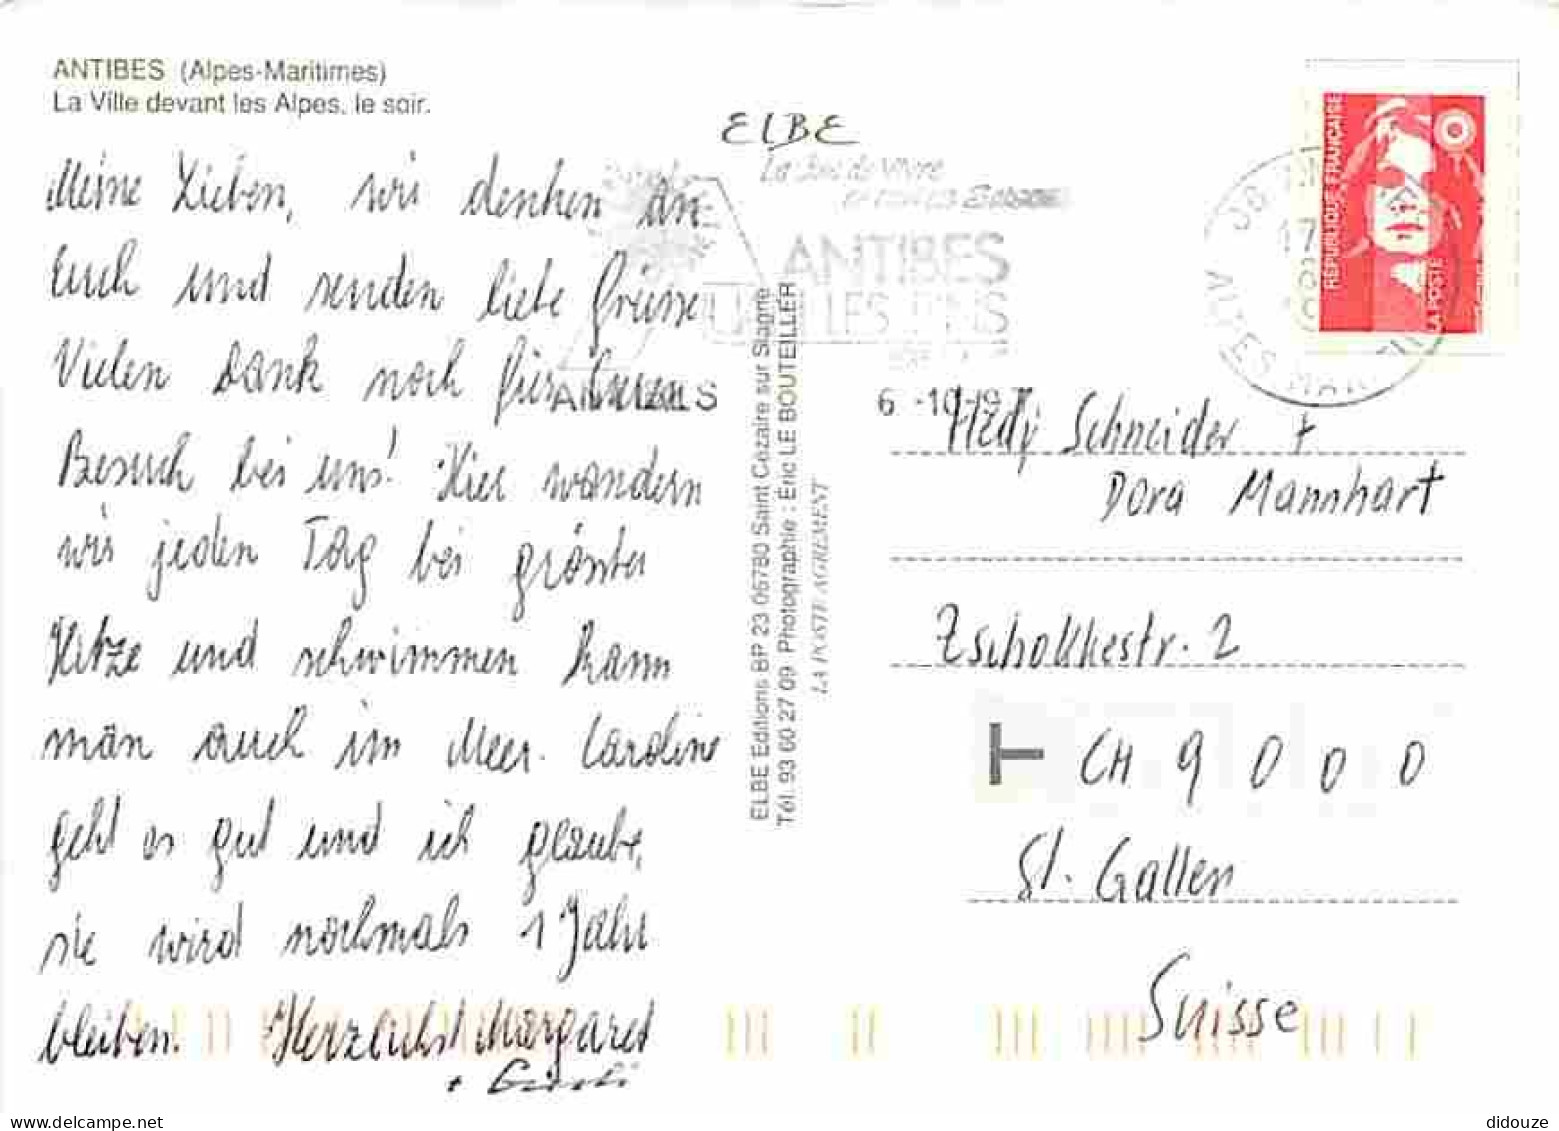 ANTIBES (Alpes-Maritimes)
La Ville devant les Alpes, le soir.
ELBE
Meine Lieben, wir denken an
Euch und senden liebe Grüsse
Vielen Dank noch für Euren
Besuch bei uns! Hier wandern
wir jeden Tag bei grösster
Hitze und schwimmen kann
man auch im Meer. Caroline
geht es gut und ich glaube,
sie wird nochmals 1 Jahr
bleiben. Herzlichst Margaret
+
La Joie de Vivre
en toutes Saisons
ANTIBES
JUAN LES PINS
ELBE Editions BP 23 06780 Saint Cézaire sur Siagne
Tél. 93 60 27 09 Photographie : Eric LE BOUTEILLER
LA POSTE AGREMENT
RÉPUBLIQUE FRANÇAISE
LA POSTE
17
ALPES MARITIMES
6 -10-19
Hedy Schneider +
Dora Mannhart
Zschokkestr. 2
T CH 9000
St. Gallen
Suisse
didouze